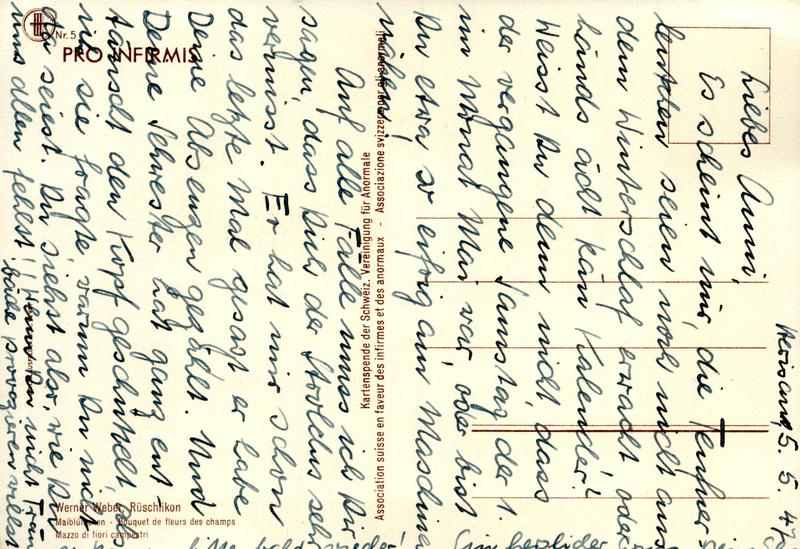 Herisau, 5. 5. 47
Liebes Anni,
Es scheint mir, die Teufner
seien wohl nicht aus
dem Winterschlaf erwacht oder
händs ächt kän Kalender!
Weisst Du denn nicht, dass
der vergangene Samstag der 1.
im Monat Mai war, oder bist
Du etwa so eifrig am Maschine
nähen!
Auf alle Fälle muss ich Dir
sagen, dass Dich der Strolchs sehr
vermisst. Er hat mir schon
das letzte Mal gesagt er habe
Deine Absengen gezählt. Und
Deine Schwester hat ganz ent-
täuscht den Kopf geschüttelt als
ich sie fragte, warum Du nicht
da seiest. Du siehst also, wie Du
uns allen fehlst! nicht
bitte bald wieder!
herzlicher
Nr. 5
PRO INFIRMIS
Kartenspende der Schweiz. Vereinigung für Anormale
Association suisse en faveur des infirmes et des anormaux - Associazione svizzera per gli anormali
Werner Weber, Rüschlikon
Maiblümchen - Bouquet de fleurs des champs
Mazzo di fiori campestri